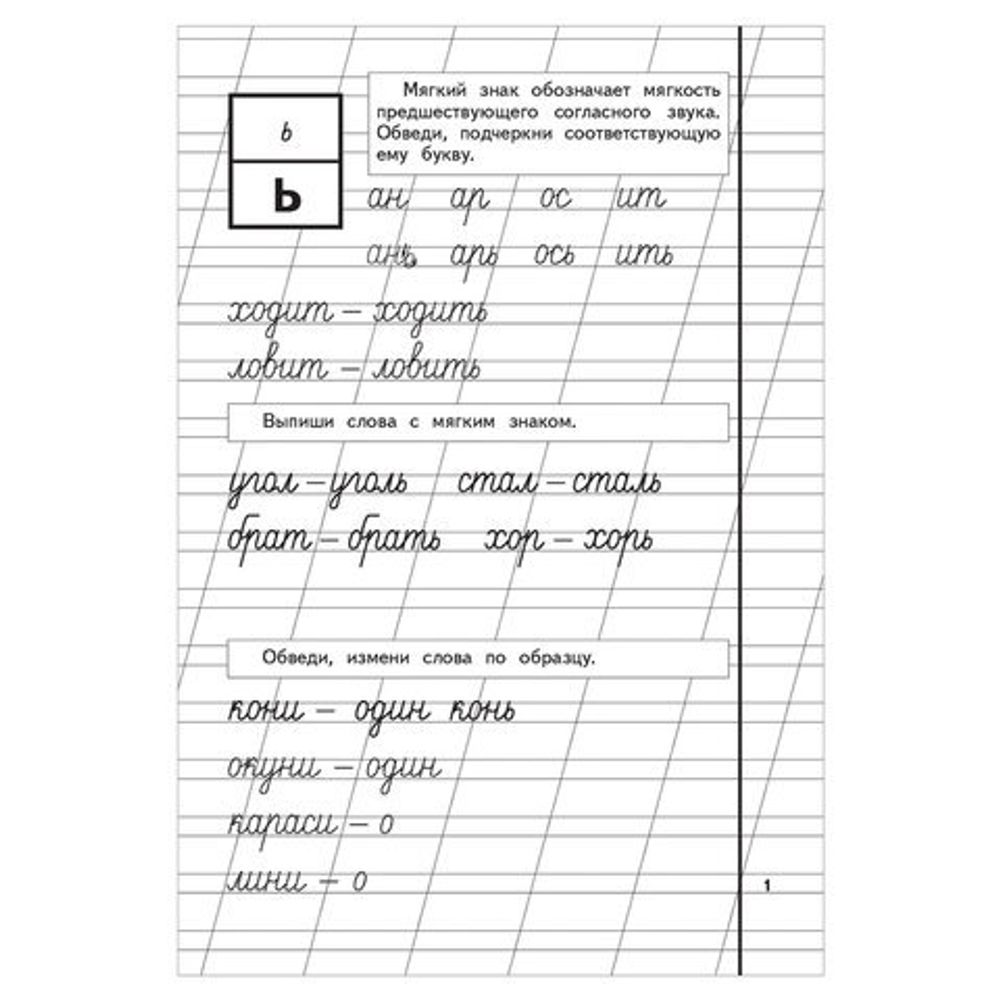 Мягкий знак обозначает мягкость
предшествующего согласного звука.
Обведи, подчеркни соответствующую
ему букву.
ь
Ь
ан ар ос ит
ань арь ось ить
ходит – ходить
ловит – ловить
Выпиши слова с мягким знаком.
угол – уголь стал – сталь
брат – брать хор – хорь
Обведи, измени слова по образцу.
кони – один конь
окуни – один
караси – о
лини – о
1